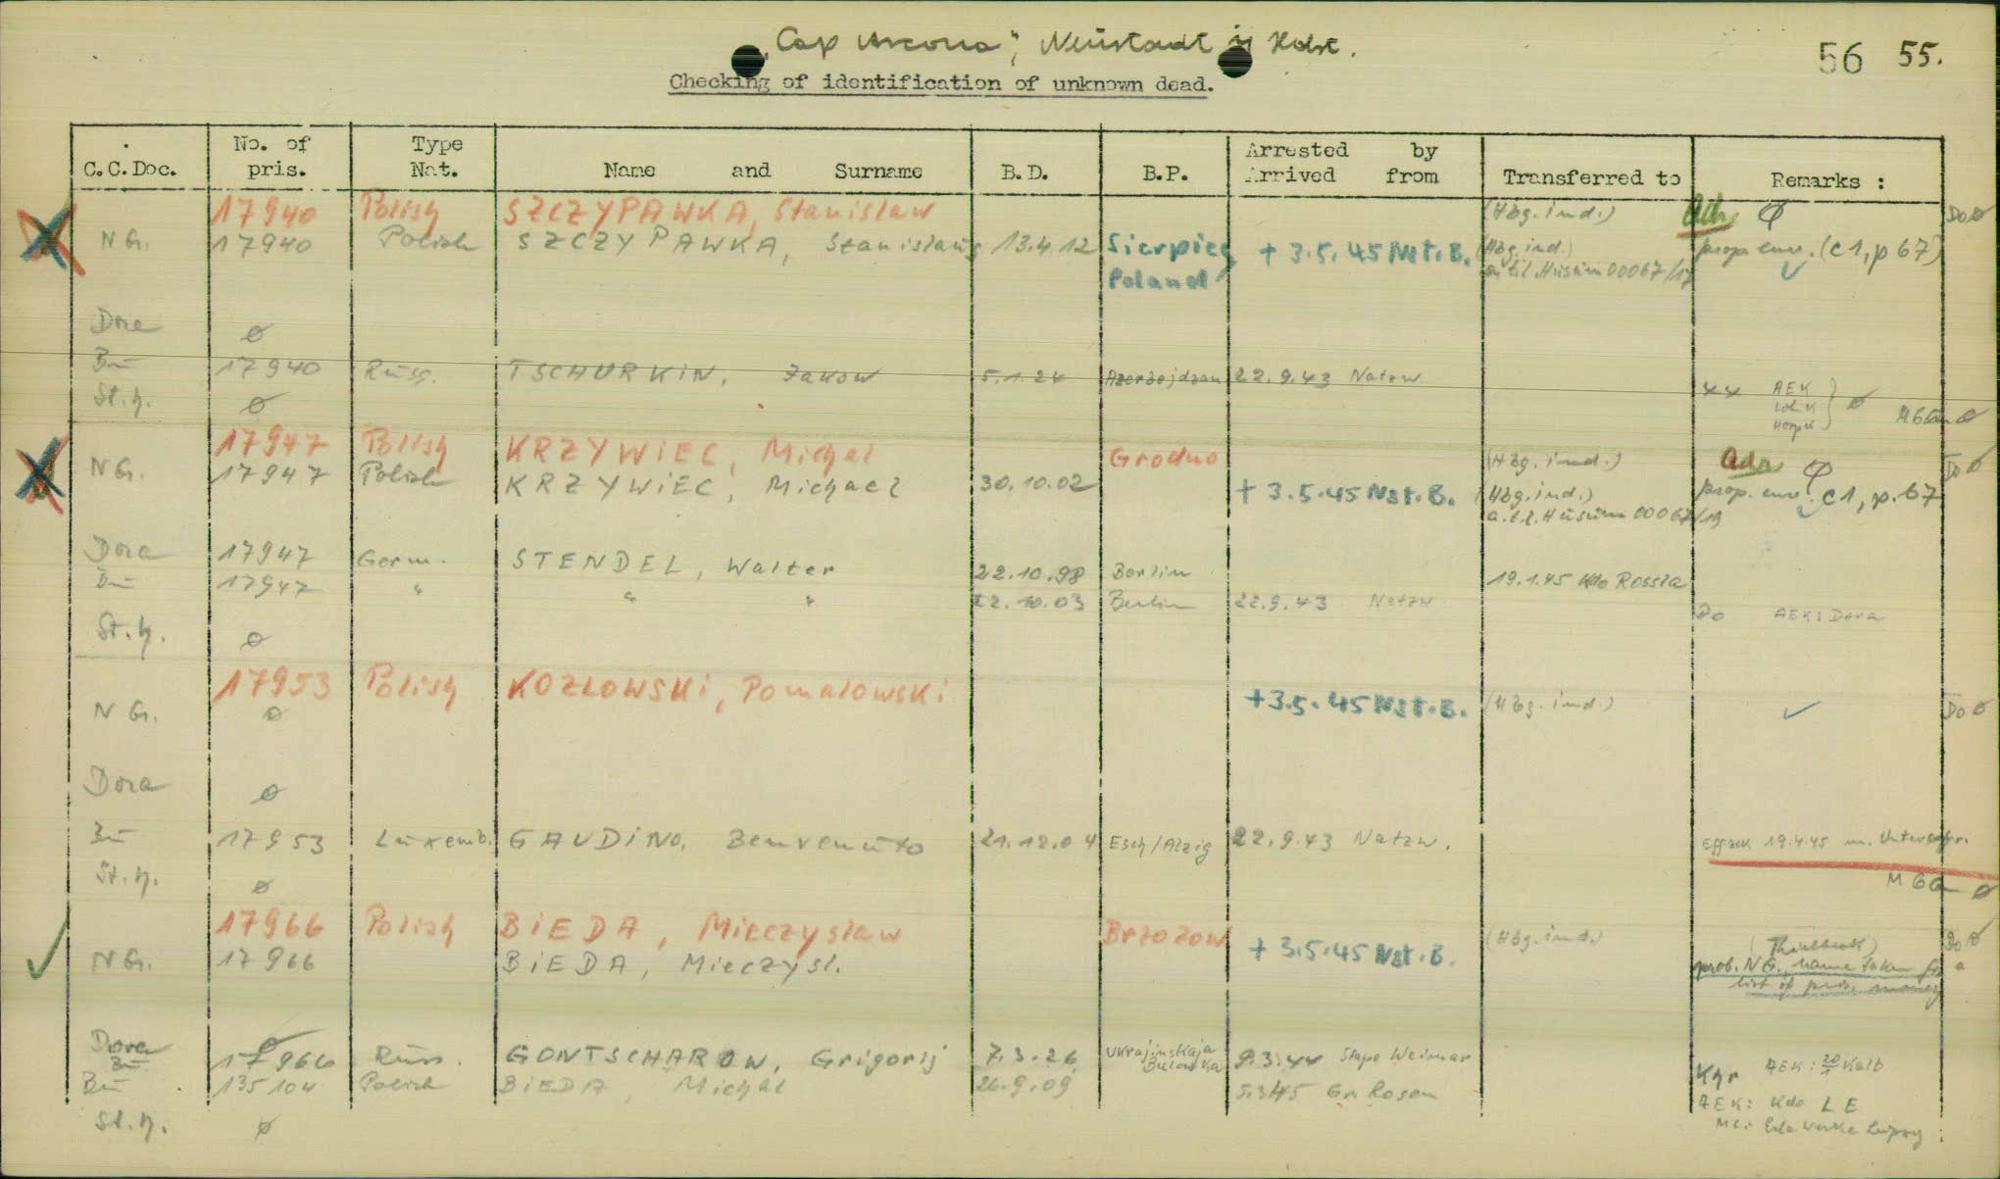 "Cap Arcona", Neustadt i/ Holst.
56 55.
Checking of identification of unknown dead.
C.C.Doc. No. of pris. Type Nat. Name and Surname B.D. B.P. Arrested by Arrived from Transferred to Remarks :
17940 Polish SZCZYPAWKA, Stanislaw (Hbg. ind.) Φ Do Ø
NG. 17940 Polish SZCZYPAWKA, Stanislaus 13.4.12 Sierpiec + 3.5.45 Nst.B. (Hbg. ind.) prop. env. (c1, p 67)
Poland Husum 00067/17
Dora Ø
Bu 17940 Russ. TSCHURKIN, Jakow 5.1.24 Azerbejdzan 22.9.43 Natzw
St.H. Ø AEK Ø
17947 Polish KRZYWIEC, Michal Grodno (Hbg. ind.) Φ Do Ø
NG. 17947 Polish KRZYWIEC, Michael 30.10.02 + 3.5.45 Nst.B. (Hbg. ind.) prop. env. c1, p. 67
a.l.l. Husum 00067/19
Dora 17947 Germ. STENDEL, Walter 22.10.98 Berlin 19.1.45 Kdo Rossla
Bu 17947 " " " 22.10.03 Berlin 22.9.43 Natzw
St.H. Ø Do AEK: Dora
17953 Polish KOZLOWSKI, Pomalowski
NG. Ø +3.5.45 Nst.B. (Hbg. ind.) Do Ø
Dora Ø
Bu 17953 Luxemb. GAUDINO, Benvenuto 21.12.04 Esch/Alzig 22.9.43 Natzw. 19.4.45
St.H. Ø Ø
17966 Polish BIEDA, Mieczyslaw Brzozow (Hbg. ind.) Do Ø
NG. 17966 BIEDA, Mieczysl. + 3.5.45 Nst.B. (Thielbeek)
prob. NG., name taken fr. a
list of pris. money
Dora Ø
Bu 17966 Russ. GONTSCHAROW, Grigorij 7.3.26 Ukrajinskaja 9.3.44 Stapo Weimar AEK: Kalb
Bu 135104 Polish BIEDA, Michal 26.9.09 5.3.45 Gr. Rosen AEK: Kdo LE
St.H. Ø Werke